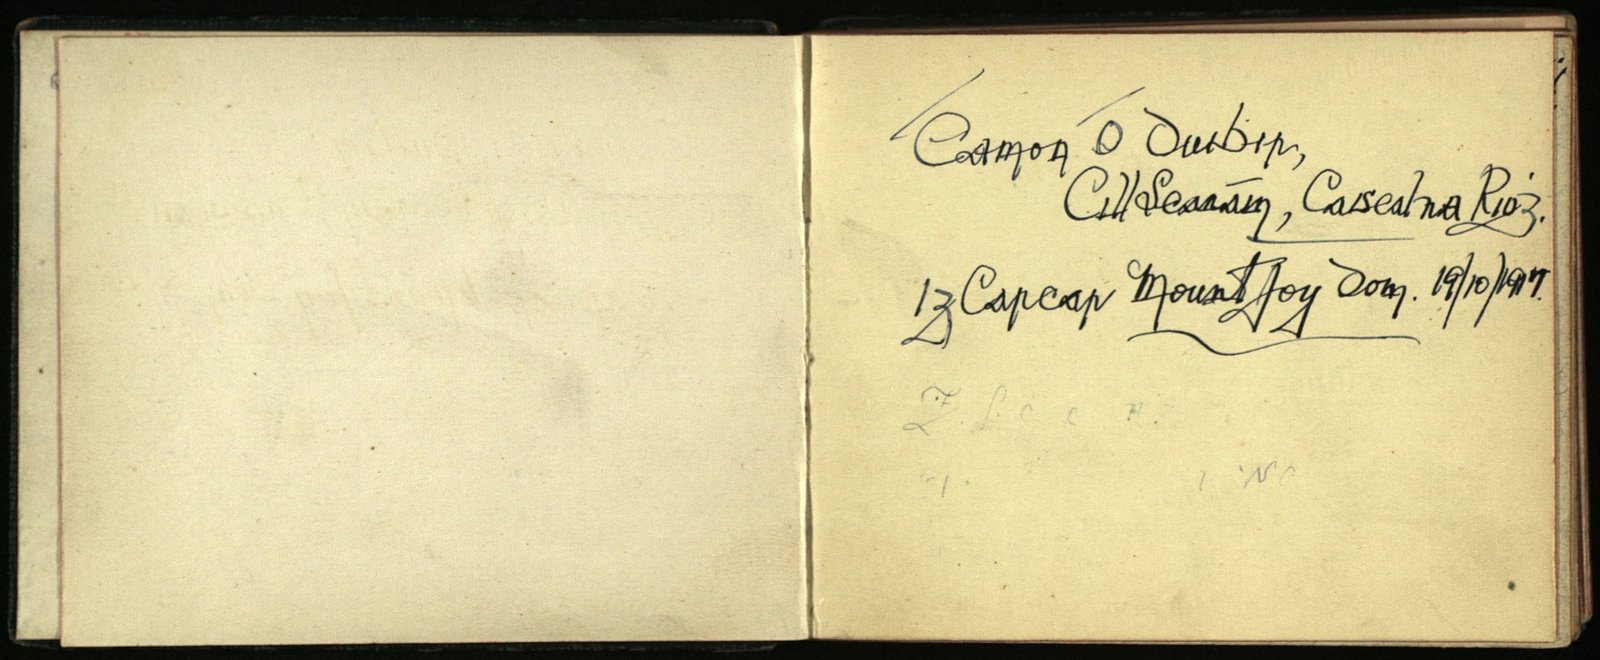 Éamon Ó Duiḃir,
Cill Seanáin, Caiseal na Ríoġ.
I gCarcar Mount Joy Dom. 19/10/1917.